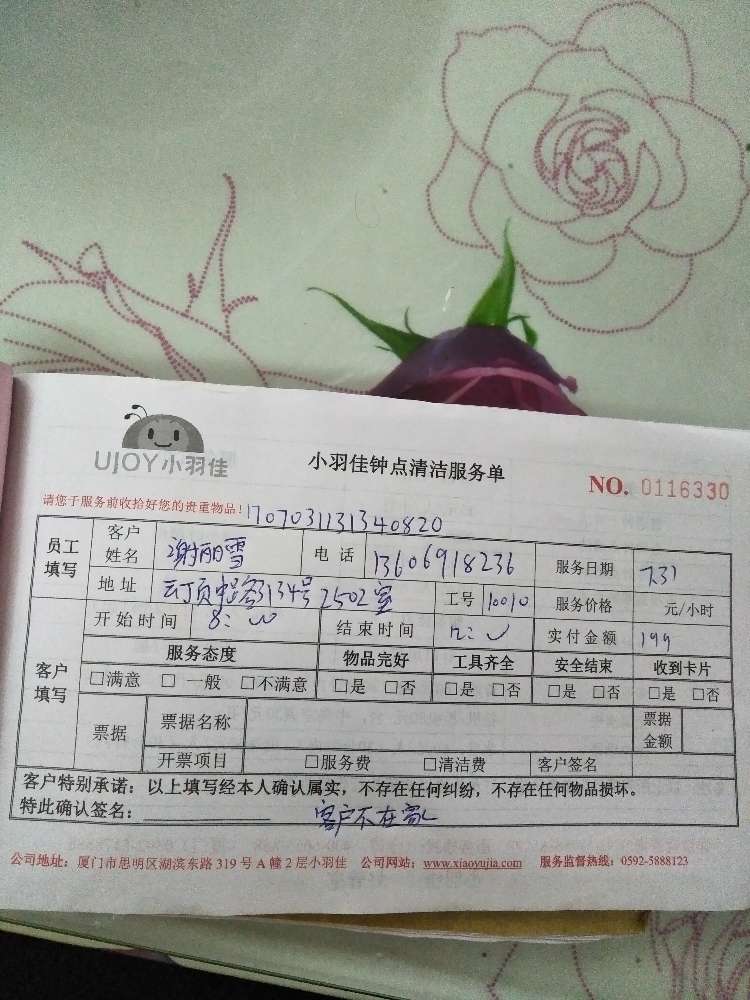 UJOY小羽佳
小羽佳钟点清洁服务单
NO. 0116330
请您于服务前收拾好您的贵重物品！
1707031131340820
员工填写 客户姓名 谢丽雪 电话 13606918236 服务日期 7.31
地址 134号2502室 工号 10010 服务价格 元/小时
客户填写 开始时间 8: 结束时间 12: 实付金额 199
服务态度 物品完好 工具齐全 安全结束 收到卡片
□满意 □一般 □不满意 □是 □否 □是 □否 □是 □否 □是 □否
票据 票据名称 票据金额
开票项目 □服务费 □清洁费 客户签名
客户特别承诺：以上填写经本人确认属实，不存在任何纠纷，不存在任何物品损坏。
特此确认签名： 客户不在
公司地址：厦门市思明区湖滨东路319号A幢2层小羽佳 公司网站：www.xiaoyujia.com 服务监督热线：0592-5888123